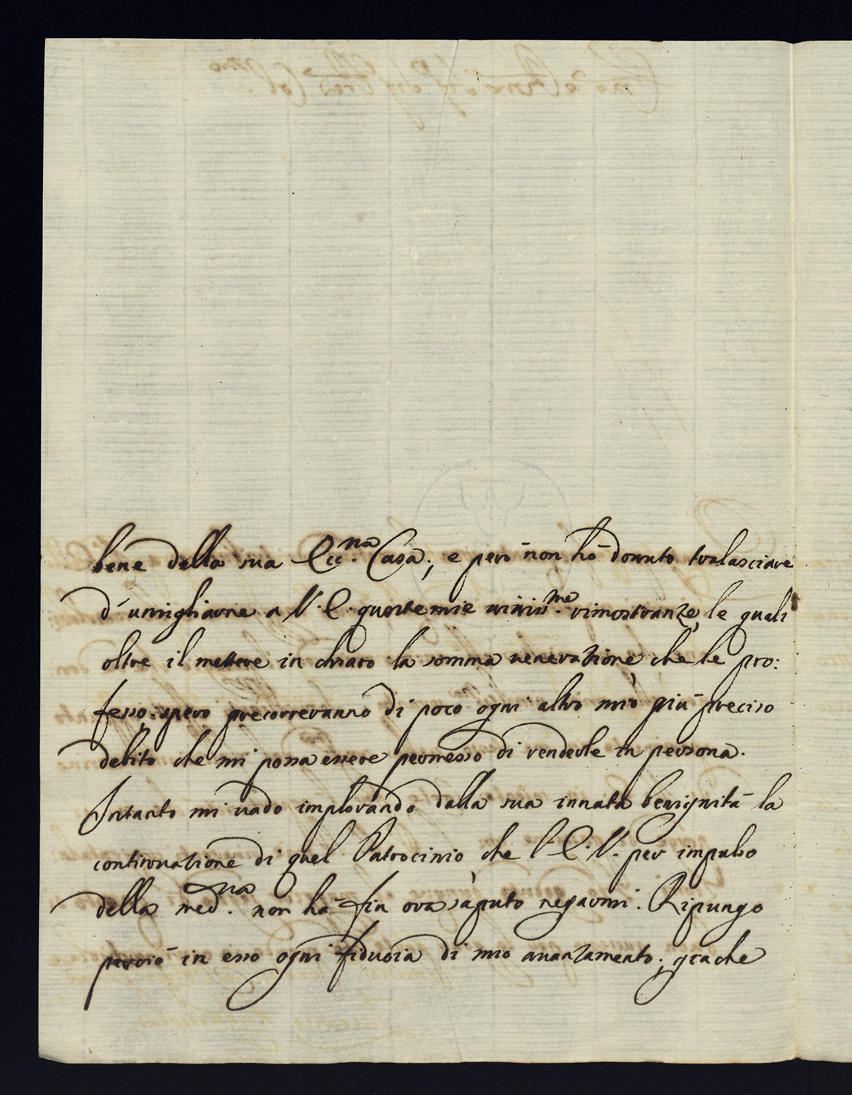 bene della sua Ecc.ma Casa; e però non hò dovuto tralasciare
d'umigliarne a V. E. queste mie umilis.me rimostranze, le quali
oltre il mettere in chiaro la somma veneratione che le pro:
fesso, spero precorreranno di poco ogni altro mio più preciso
debito che mi possa essere permesso di renderle in persona.
Intanto mi vado implorando dalla sua innata benignità la
continuatione di quel Patrocinio che l'E. V. per impulso
della med.ma non hà fin ora saputo negarmi. Ripungo
perciò in esso ogni fiducia di mio avanzamento; giache